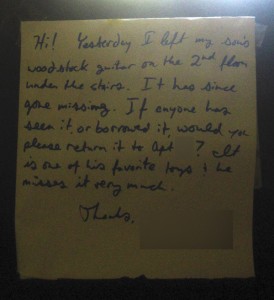 Hi! Yesterday I left my son's
woodstock guitar on the 2nd floor
under the stairs. It has since
gone missing. If anyone has
seen it, or borrowed it, would you
please return it to Apt ? It
is one of his favorite toys & he
misses it very much.
Thanks,